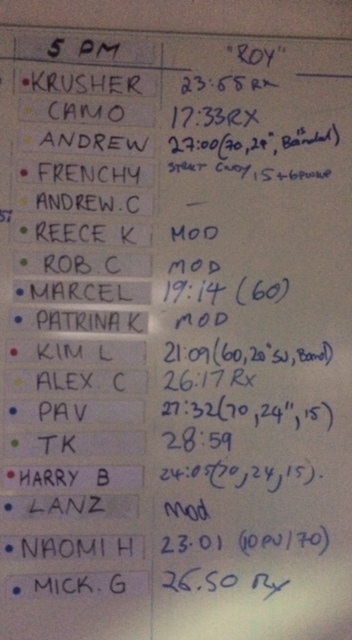 5 PM "ROY"
KRUSHER 23:55 RX
CAMO 17:33 RX
ANDREW 27:00 (70, 24", 15 Banded)
FRENCHY STRICT 15 +
ANDREW.C —
REECE K MOD
ROB.C MOD
MARCEL 19:14 (60)
PATRINA K MOD
KIM L 21:09 (60, 20" SU, Band)
ALEX.C 26:17 Rx
PAV 27:32 (70, 24", 15)
TK 28:59
HARRY B 24:05 (70, 24, 15).
LANZ Mod
NAOMI H 23.01 (10PU/70)
MICK.G 26.50 Rx